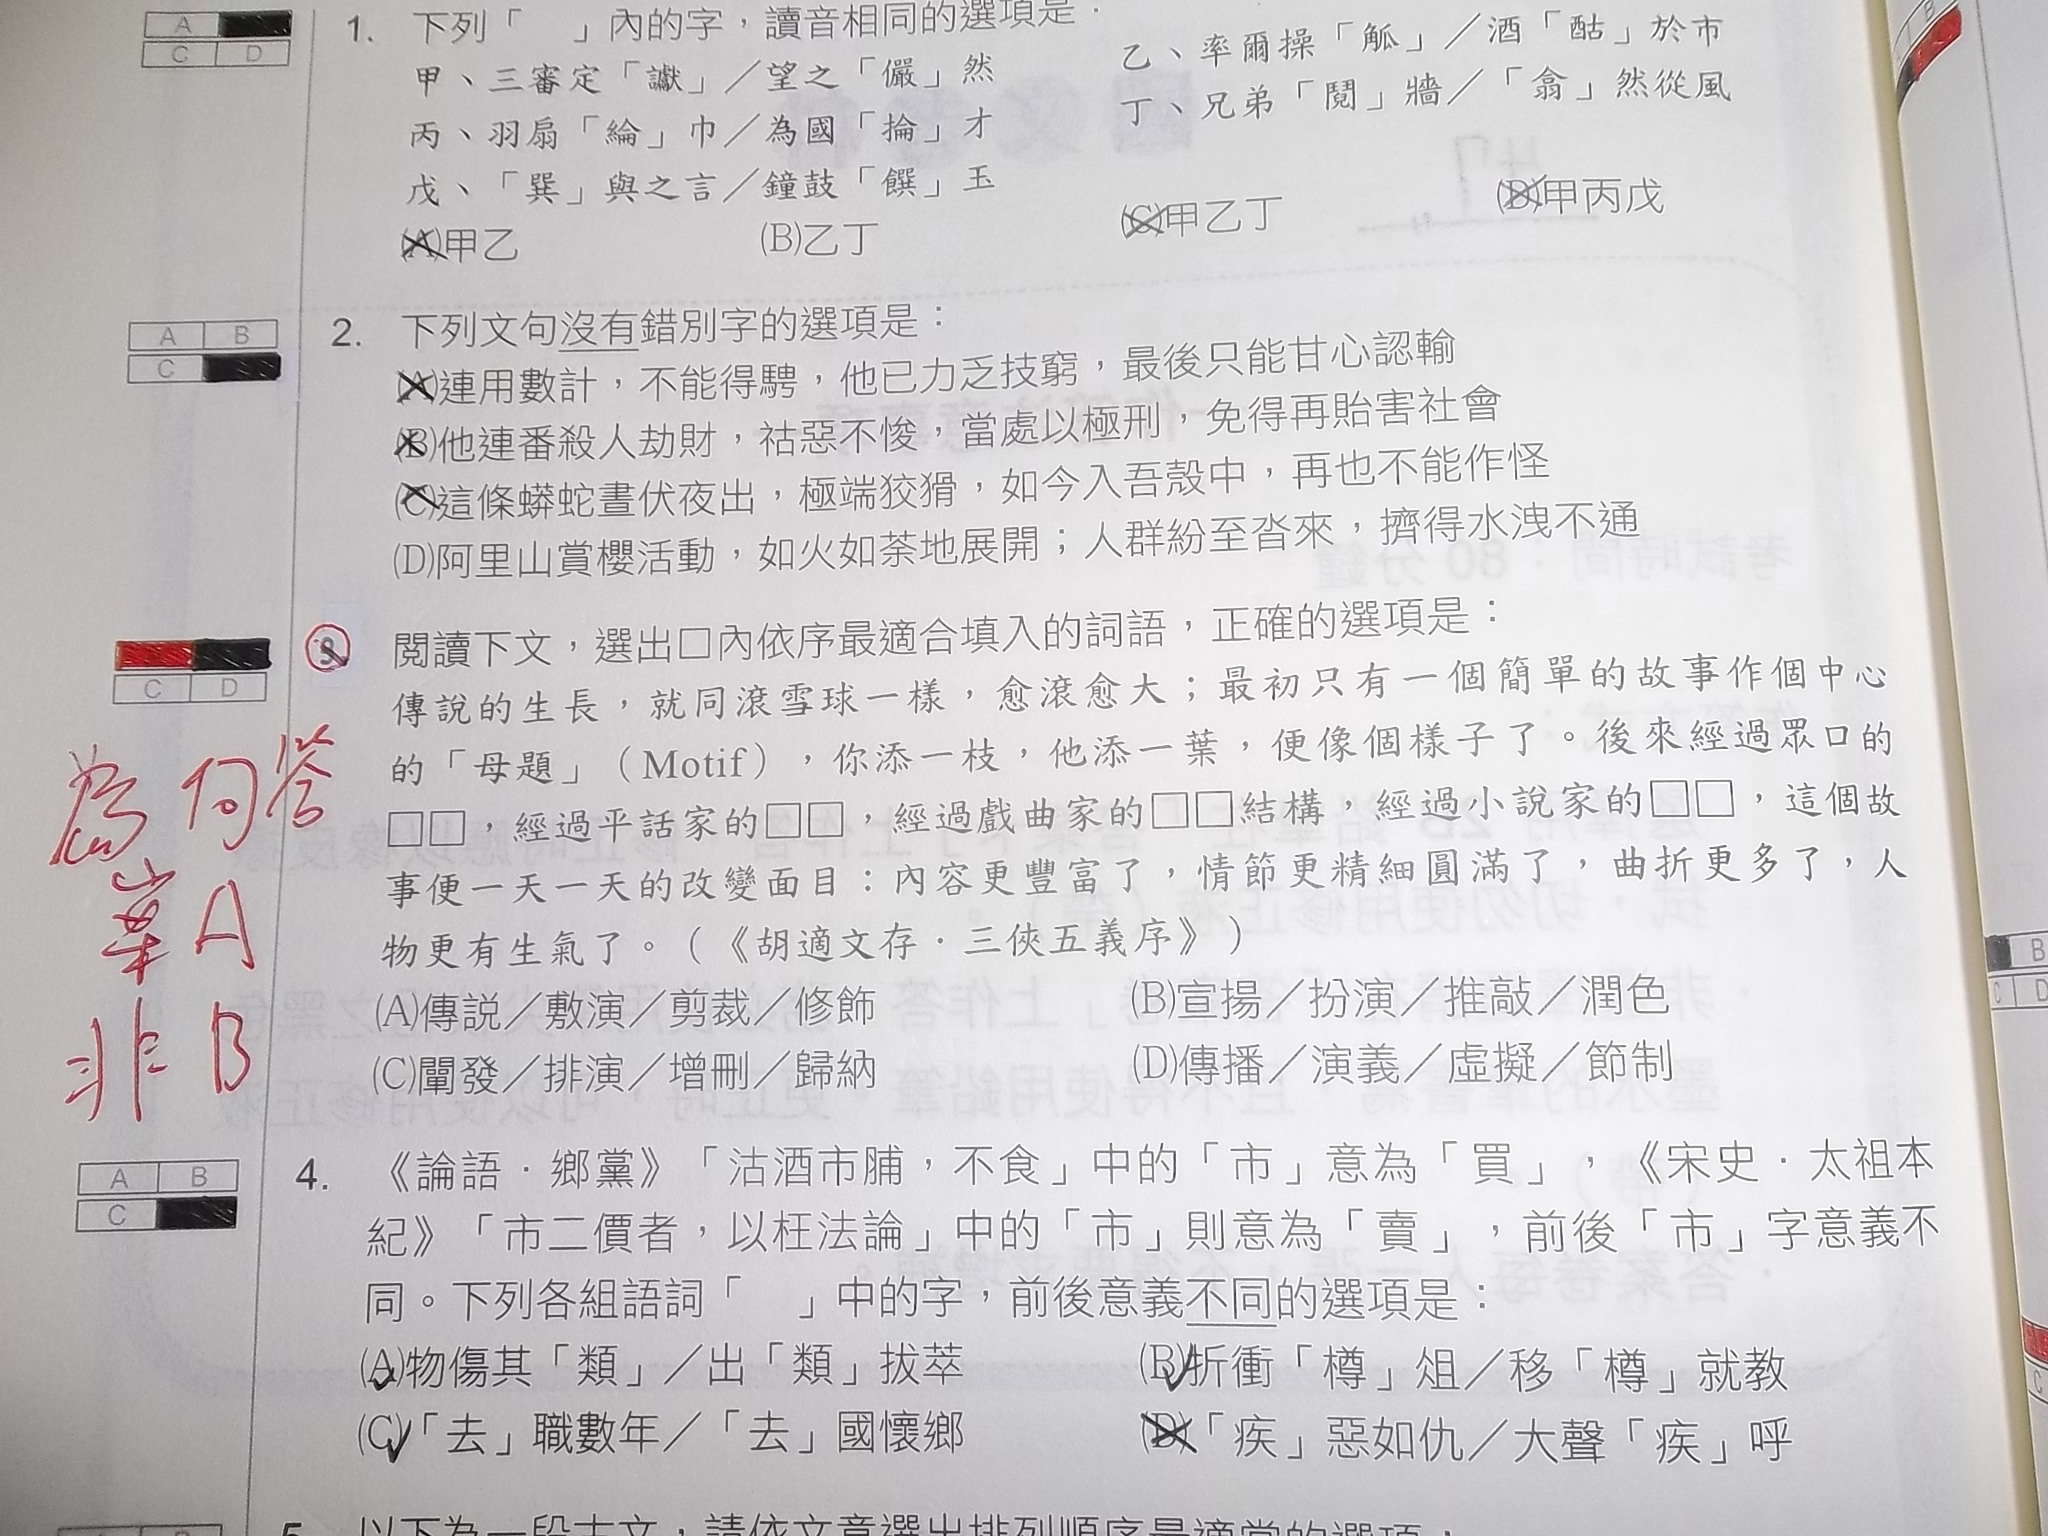 A
C D
1. 下列「　」內的字，讀音相同的選項是：
甲、三審定「讞」／望之「儼」然
乙、率爾操「觚」／酒「酤」於市
丙、羽扇「綸」巾／為國「掄」才
丁、兄弟「鬩」牆／「翕」然從風
戊、「巽」與之言／鐘鼓「饌」玉
(A)甲乙 (B)乙丁 (C)甲乙丁 (D)甲丙戊
A B
C
2. 下列文句沒有錯別字的選項是：
(A)連用數計，不能得騁，他已力乏技窮，最後只能甘心認輸
(B)他連番殺人劫財，祜惡不悛，當處以極刑，免得再貽害社會
(C)這條蟒蛇晝伏夜出，極端狡猾，如今入吾殼中，再也不能作怪
(D)阿里山賞櫻活動，如火如荼地展開；人群紛至沓來，擠得水洩不通
C D
3. 閱讀下文，選出□內依序最適合填入的詞語，正確的選項是：
傳說的生長，就同滾雪球一樣，愈滾愈大；最初只有一個簡單的故事作個中心
的「母題」（Motif），你添一枝，他添一葉，便像個樣子了。後來經過眾口的
□□，經過平話家的□□，經過戲曲家的□□結構，經過小說家的□□，這個故
事便一天一天的改變面目：內容更豐富了，情節更精細圓滿了，曲折更多了，人
物更有生氣了。（《胡適文存．三俠五義序》）
(A)傳說／敷演／剪裁／修飾 (B)宣揚／扮演／推敲／潤色
(C)闡發／排演／增刪／歸納 (D)傳播／演義／虛擬／節制
為何答
案A
非B
A B
C
4. 《論語．鄉黨》「沽酒市脯，不食」中的「市」意為「買」，《宋史．太祖本
紀》「市二價者，以枉法論」中的「市」則意為「賣」，前後「市」字意義不
同。下列各組語詞「　」中的字，前後意義不同的選項是：
(A)物傷其「類」／出「類」拔萃 (B)折衝「樽」俎／移「樽」就教
(C)「去」職數年／「去」國懷鄉 (D)「疾」惡如仇／大聲「疾」呼
5. 以下為一段古文，請依文意選出排列順序最適當的選項：